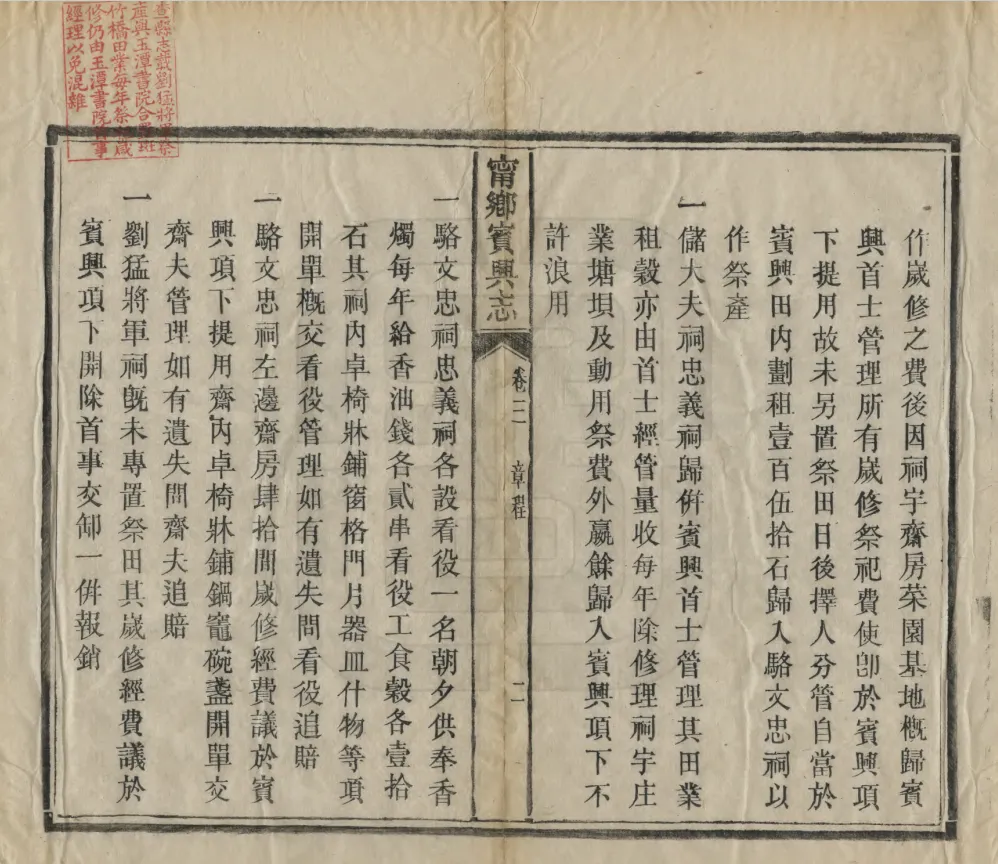 作歲修之費後因祠宇齋房菜園基地概歸賓
興首士管理所有歲修祭祀費使卽於賓興項
下提用故未另置祭田日後擇人分管自當於
賓興田内劃租壹百伍拾石歸入駱文忠祠以
作祭產
一儲大夫祠忠義祠歸併賓興首士管理其田業
租穀亦由首士經管量收每年除修理祠宇庄
業塘垻及動用祭費外嬴餘歸入賓興項下不
許浪用
甯鄉賓興志
卷二
章程
二
一駱文忠祠忠義祠各設看役一名朝夕供奉香
燭每年給香油錢各貳串看役工食穀各壹拾
石其祠内卓椅牀鋪窗格門片器皿什物等項
開單概交看役管理如有遺失問看役追賠
一駱文忠祠左邊齋房肆拾間歲修經費議於賓
興項下提用齋内卓椅牀鋪鍋竈碗盞開單交
齋夫管理如有遺失問齋夫追賠
一劉猛將軍祠旣未專置祭田其歲修經費議於
賓興項下開除首事交卸一併報銷
查縣志載劉猛將軍祭
產與玉潭書院合置斑
竹橋田業每年祭祀歲
修仍由玉潭書院首事
經理以免混雜